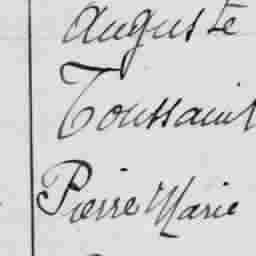 Auguste
Toussaint
Pierre Marie